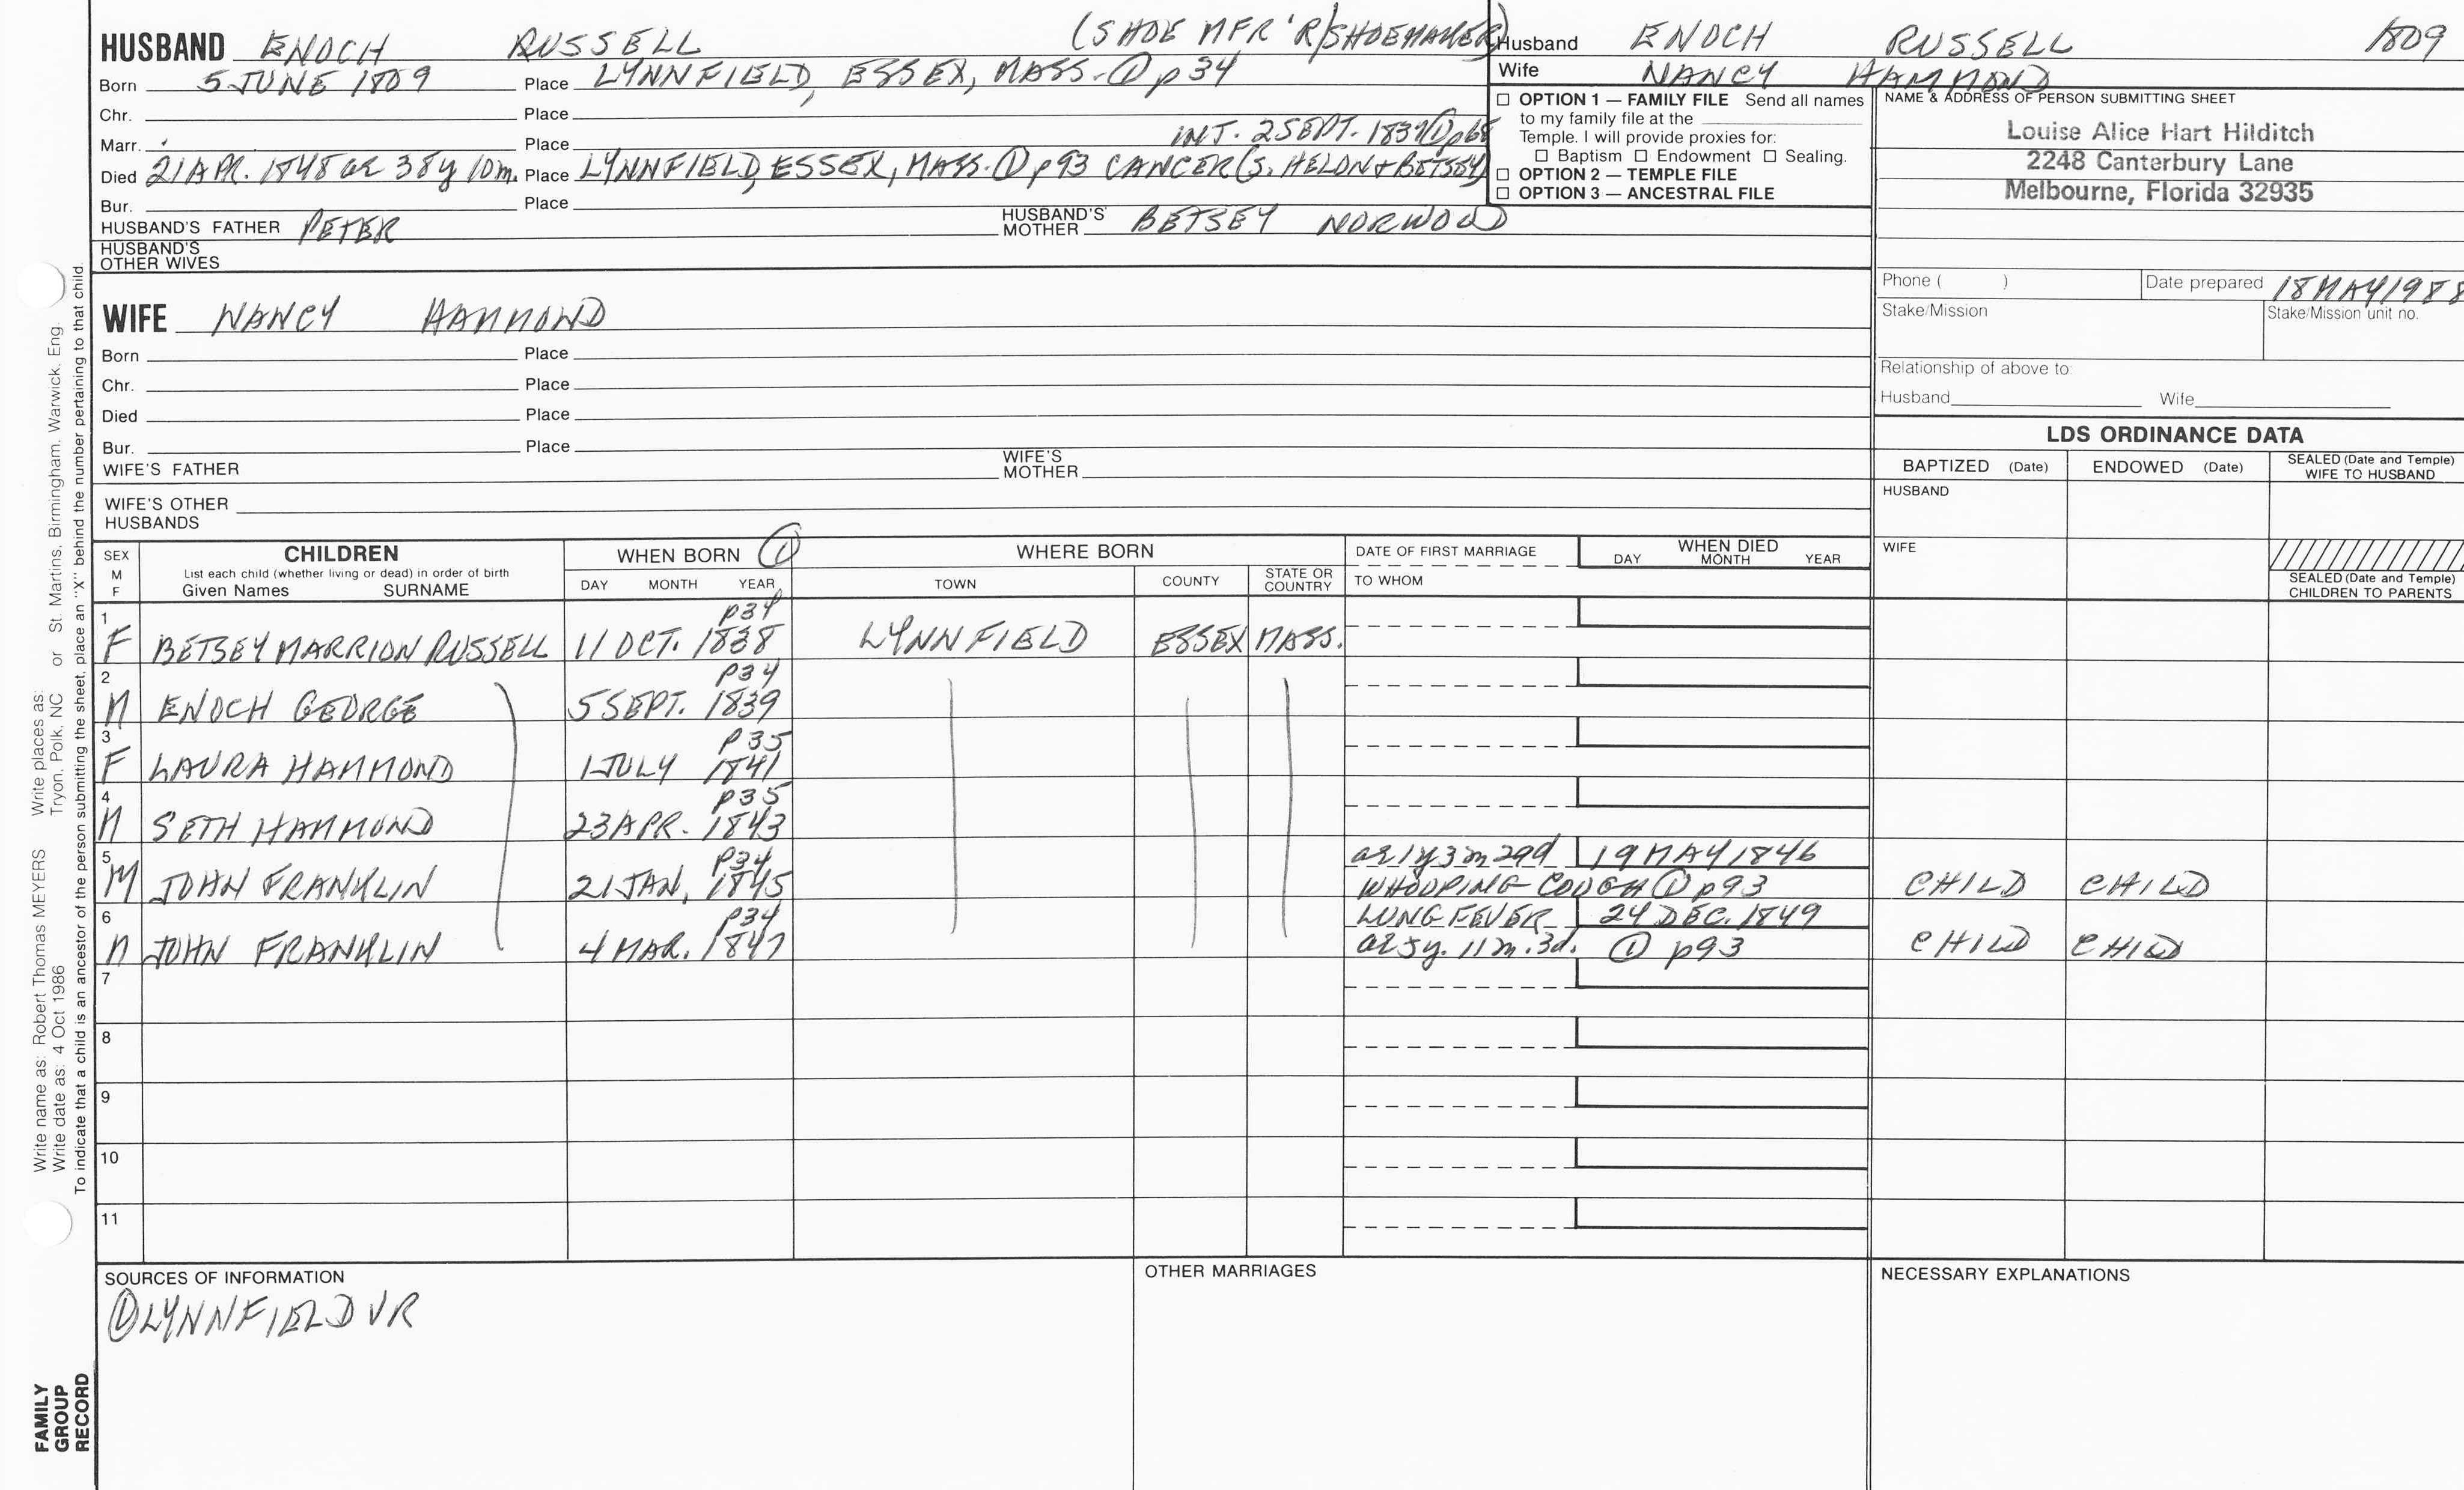 HUSBAND ENOCH RUSSELL (SHOE MFR'R/SHOEMAKER)
Born 5 JUNE 1809 Place LYNNFIELD, ESSEX, MASS. ① p34
Chr. Place
Marr. Place INT. 2 SEPT. 1837 ① p68
Died 21 APR. 1848 ae 38y 10m. Place LYNNFIELD, ESSEX, MASS. ① p93 CANCER (S. HELDN + BETSEY)
Bur. Place
HUSBAND'S FATHER PETER HUSBAND'S MOTHER BETSEY NORWOOD
HUSBAND'S OTHER WIVES
WIFE NANCY HAMMOND
Born Place
Chr. Place
Died Place
Bur. Place
WIFE'S FATHER WIFE'S MOTHER
WIFE'S OTHER HUSBANDS
Husband ENOCH RUSSELL 1809
Wife NANCY HAMMOND
☐ OPTION 1 — FAMILY FILE Send all names
to my family file at the
Temple. I will provide proxies for:
☐ Baptism ☐ Endowment ☐ Sealing.
☐ OPTION 2 — TEMPLE FILE
☐ OPTION 3 — ANCESTRAL FILE
NAME & ADDRESS OF PERSON SUBMITTING SHEET
Louise Alice Hart Hilditch
2248 Canterbury Lane
Melbourne, Florida 32935
Phone ( ) Date prepared 18 MAY 1988
Stake/Mission Stake/Mission unit no.
Relationship of above to:
Husband Wife
LDS ORDINANCE DATA
BAPTIZED (Date) ENDOWED (Date) SEALED (Date and Temple) WIFE TO HUSBAND
HUSBAND
WIFE
SEALED (Date and Temple) CHILDREN TO PARENTS
SEX M F CHILDREN WHEN BORN ① WHERE BORN DATE OF FIRST MARRIAGE WHEN DIED
List each child (whether living or dead) in order of birth
Given Names SURNAME DAY MONTH YEAR TOWN COUNTY STATE OR COUNTRY TO WHOM DAY MONTH YEAR
1 p34
F BETSEY MARRION RUSSELL 11 OCT. 1838 LYNNFIELD ESSEX MASS.
2 p34
M ENOCH GEORGE 5 SEPT. 1839
3 p35
F LAURA HAMMOND 1 JULY 1841
4 p35
M SETH HAMMOND 23 APR. 1843
5 p34 ae 1y 3m 29d 19 MAY 1846
M JOHN FRANKLIN 21 JAN, 1845 WHOOPING COUGH ① p93 CHILD CHILD
6 p34 LUNG FEVER 24 DEC. 1849
M JOHN FRANKLIN 4 MAR. 1847 ae 5y. 11m. 3d. ① p93 CHILD CHILD
7
8
9
10
11
SOURCES OF INFORMATION OTHER MARRIAGES NECESSARY EXPLANATIONS
① LYNNFIELD VR
Write name as: Robert Thomas MEYERS Write places as:
Write date as: 4 Oct 1986 Tryon, Polk, NC or St. Martins, Birmingham, Warwick, Eng.
To indicate that a child is an ancestor of the person submitting the sheet, place an "X" behind the number pertaining to that child.
FAMILY
GROUP
RECORD